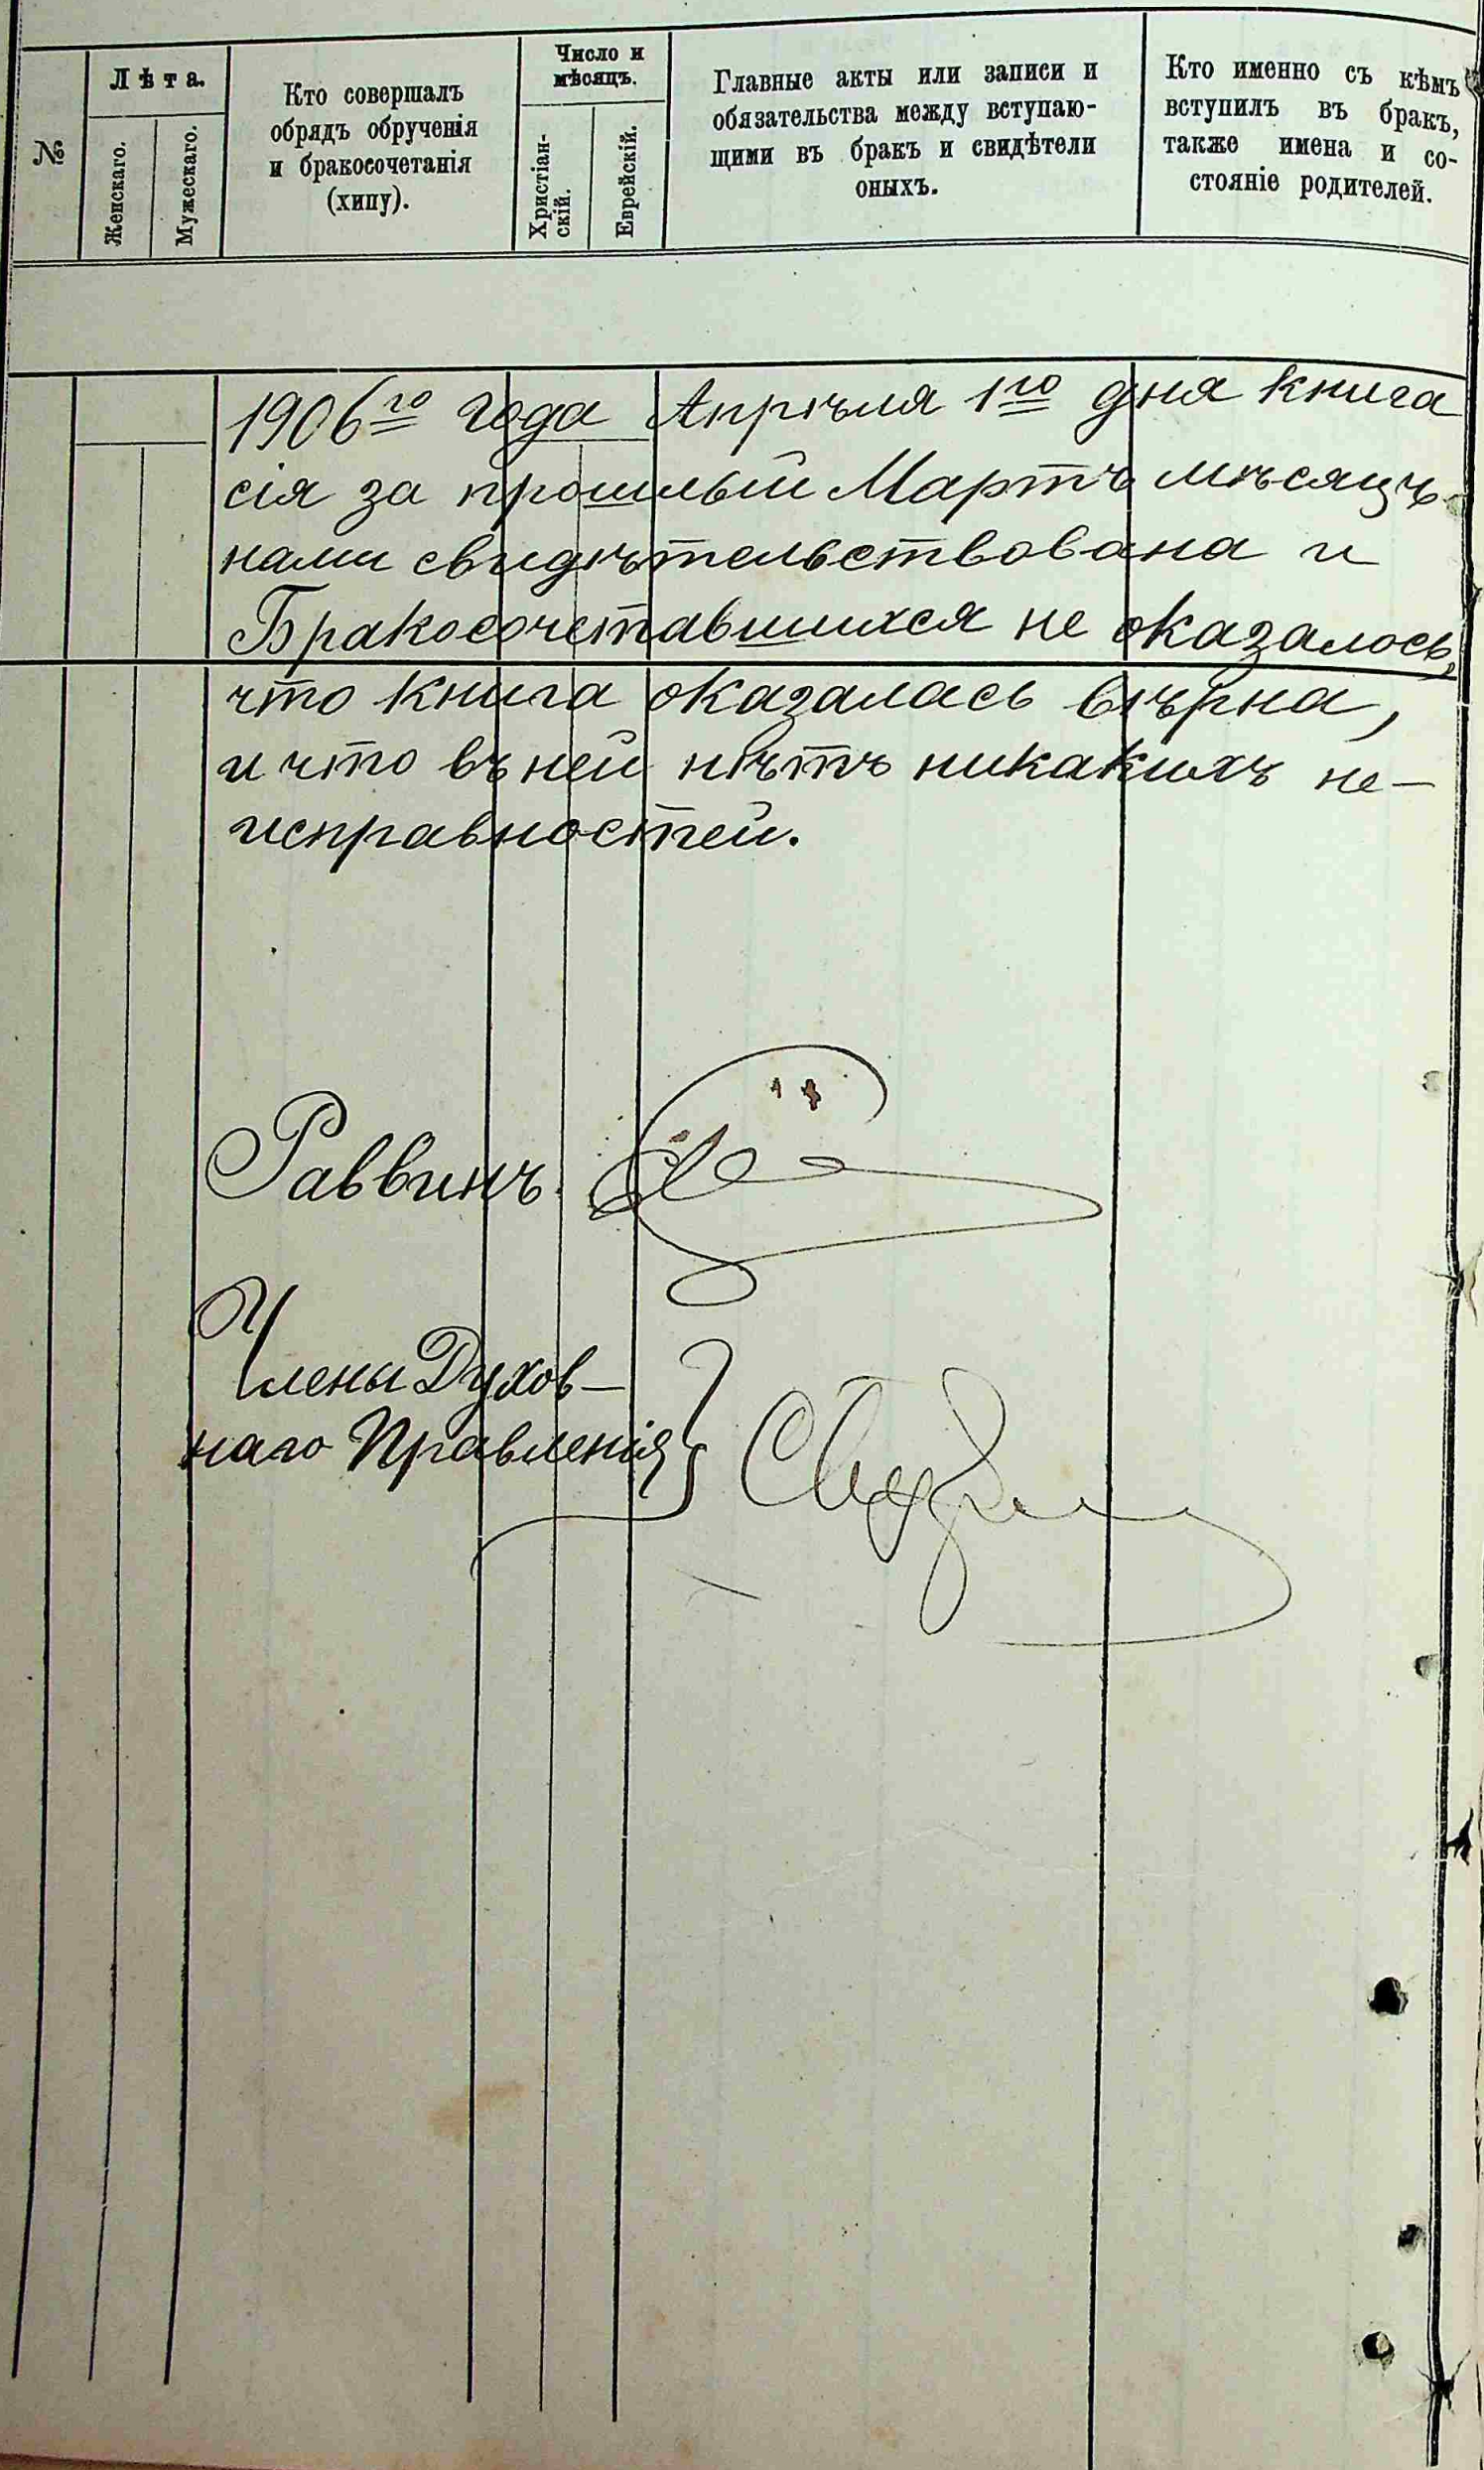 №
Лѣта.
Женскаго.
Мужескаго.
Кто совершалъ
обрядъ обрученія
и бракосочетанія
(хипу).
Число и
мѣсяцъ.
Христіан-
скій.
Еврейскій.
Главные акты или записи и
обязательства между вступаю-
щими въ бракъ и свидѣтели
оныхъ.
Кто именно съ кѣмъ
вступилъ въ бракъ,
также имена и со-
стояніе родителей.
1906го года Апрѣля 1го дня книга
сія за прошлый Мартъ мѣсяцъ
нами свидѣтельствована и
Бракосочетавшихся не оказалось,
что книга оказалась вѣрна,
и что въ ней нѣтъ никакихъ не-
исправностей.
Раввинъ
Члены Духов-
наго Правленія